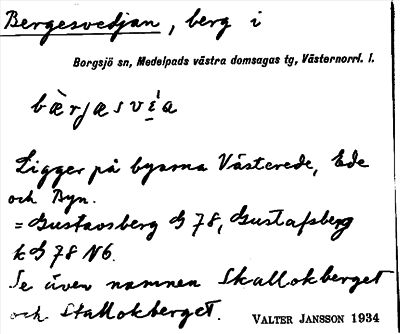 Bergesvedjan, berg i
Borgsjö sn, Medelpads västra domsagas tg, Västernorrl. l.
bæ̀rjæsvi̯a
Ligger på byarna Västerede, Ede
och Byn.
= Gustavsberg G 78, Gustafsberg
k G 78 N6.
Se även namnen Skallokberget
och Stallokberget.
VALTER JANSSON 1934